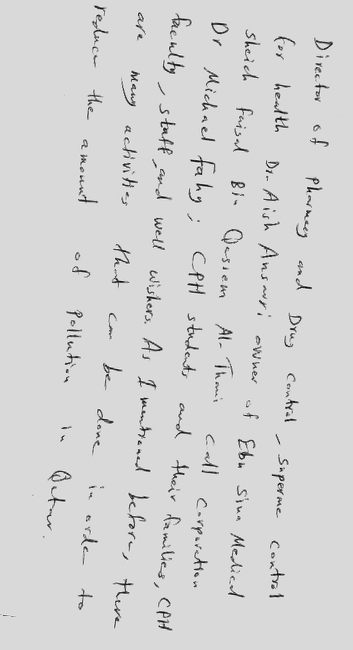 Director of pharmacy and Drug control - Superme control
for health Dr. Aish Ansari owner of Ebn Sina Medical
Sheich Faisal Bin Qassem Al-Thani Call Corparation
Dr Michael Fahy; CPH students and their families, CPH
faculty, staff, and well wishers. As I mentioned before, there
are many activities that can be done in orde to
reduce the amount of pollution in Qatar.